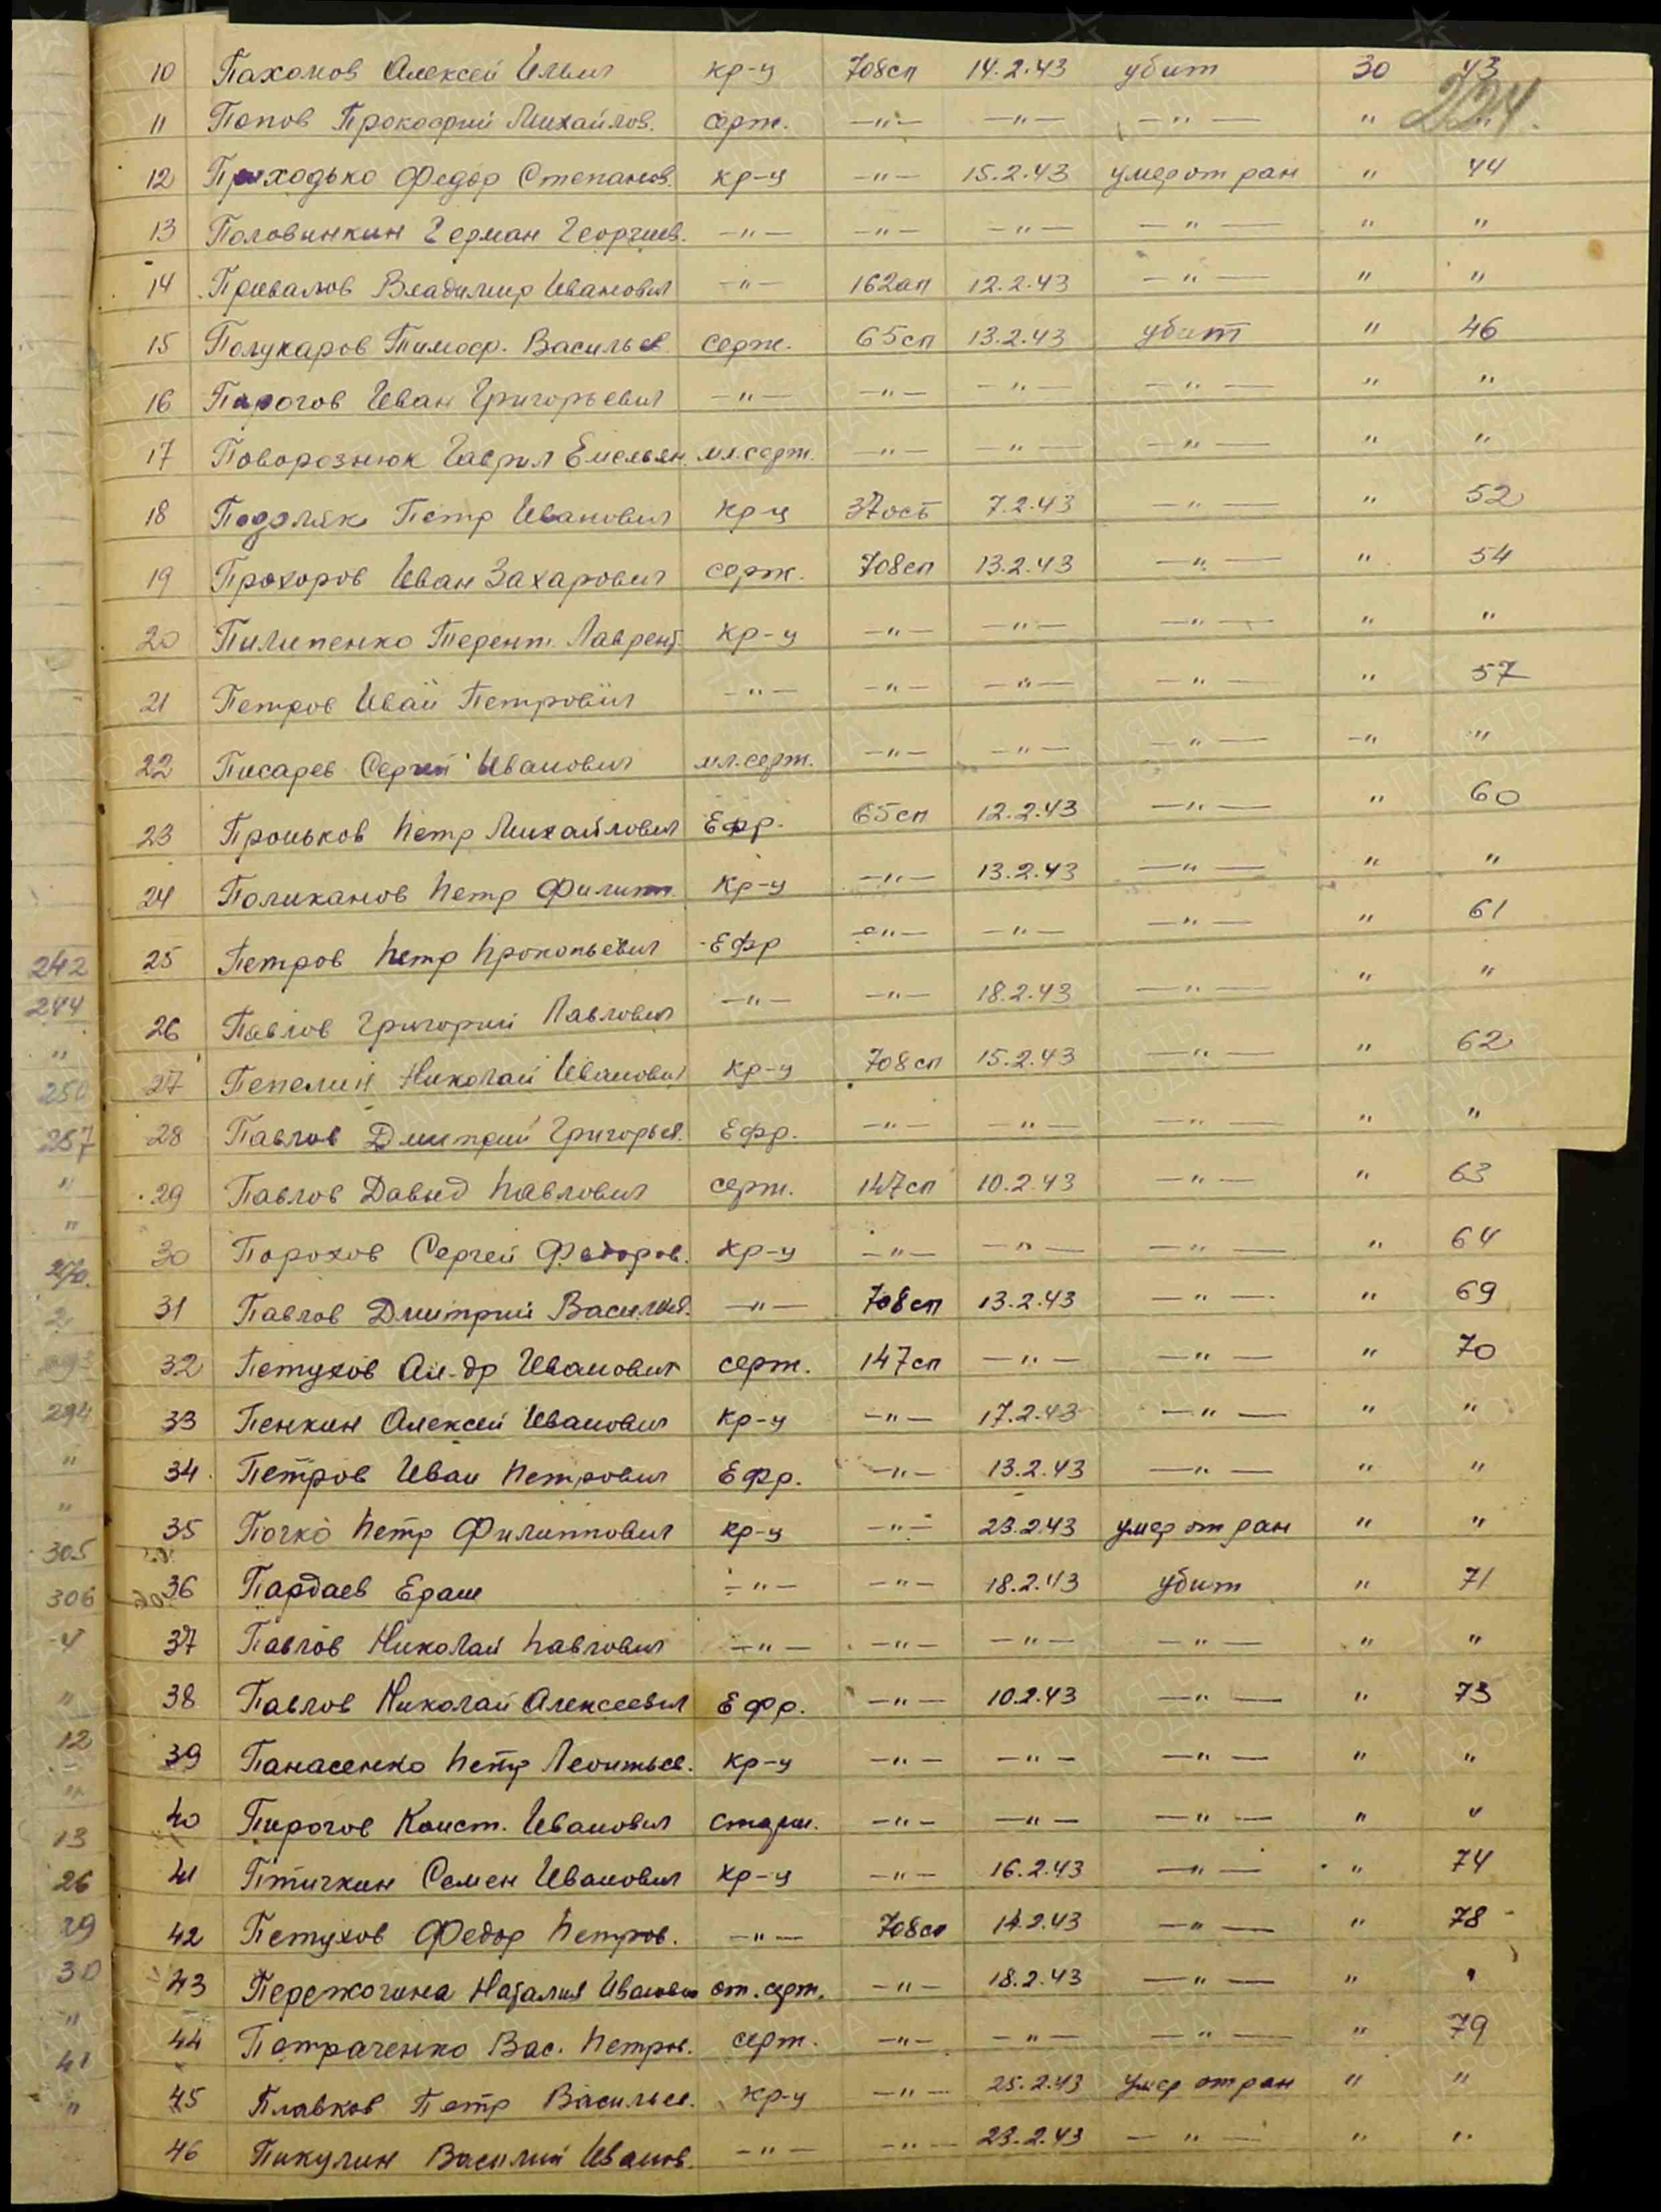 10 Пахомов Алексей Ильич кр-ц 708сп 14.2.43 убит 30 43
224.
11 Попов Прокофий Михайлов. серж. —"— —"— —"— " "
12 Приходько Федор Степанов. кр-ц —"— 15.2.43 умер от ран " 44
13 Половинкин Герман Георгиев. —"— —"— —"— —"— " "
14 Привалов Владимир Иванович —"— 162ап 12.2.43 —"— " "
15 Полукаров Тимоф. Васильев. серж. 65сп 13.2.43 убит " 46
16 Пирогов Иван Григорьевич —"— —"— —"— —"— " "
17 Поворознюк Гаврил Емельян. мл.серж. —"— —"— —"— " "
18 Подоляк Петр Иванович кр-ц 37осб 7.2.43 —"— " 52
19 Прохоров Иван Захарович серж. 708сп 13.2.43 —"— " 54
20 Пилипенко Терент. Лаврент. кр-ц —"— —"— —"— " "
21 Петров Иван Петрович —"— —"— —"— —"— " 57
22 Писарев Сергей Иванович мл.серж. —"— —"— —"— —" "
23 Проньков Петр Михайлович Ефр. 65сп 12.2.43 —"— " 60
24 Поликанов Петр Филипп. кр-ц —"— 13.2.43 —"— " "
25 Петров Петр Прокопьевич Ефр —"— —"— —"— " 61
26 Павлов Григорий Павлович —"— —"— 18.2.43 —"— " "
27 Пепелин Николай Иванович кр-ц 708сп 15.2.43 —"— " 62
28 Павлов Дмитрий Григорьев. Ефр. —"— —"— —"— " "
29 Павлов Давид Павлович серж. 147сп 10.2.43 —"— " 63
30 Порохов Сергей Федоров. кр-ц —"— —"— —"— " 64
31 Павлов Дмитрий Васильев. —"— 708сп 13.2.43 —"— " 69
32 Петухов Ал-др Иванович серж. 147сп —"— —"— " 70
33 Пенкин Алексей Иванович кр-ц —"— 17.2.43 —"— " "
34 Петров Иван Петрович Ефр. —"— 13.2.43 —"— " "
35 Почко Петр Филиппович кр-ц —"— 23.2.43 умер от ран " "
36 Пардаев Ераш —"— —"— 18.2.43 убит " 71
37 Павлов Николай Павлович —"— —"— —"— —"— " "
38 Павлов Николай Алексеевич Ефр. —"— 10.2.43 —"— " 73
39 Панасенко Петр Леонтьев. кр-ц —"— —"— —"— " "
40 Пирогов Конст. Иванович старш. —"— —"— —"— " "
41 Птичкин Семен Иванович кр-ц —"— 16.2.43 —"— " 74
42 Петухов Федор Петров. —"— 708сп 14.2.43 —"— " 78
43 Пережогина Наталия Ивановн ст.серж. —"— 18.2.43 —"— " "
44 Петраченко Вас. Петров. серж. —"— —"— —"— " 79
45 Плавков Петр Васильев. кр-ц —"— 25.2.43 умер от ран " "
46 Пикулин Василий Иванов. —"— —"— 23.2.43 —"— " "
242
244
"
250
257
"
"
270.
294
"
"
305
306
"
12
"
13
26
29
30
"
41
"